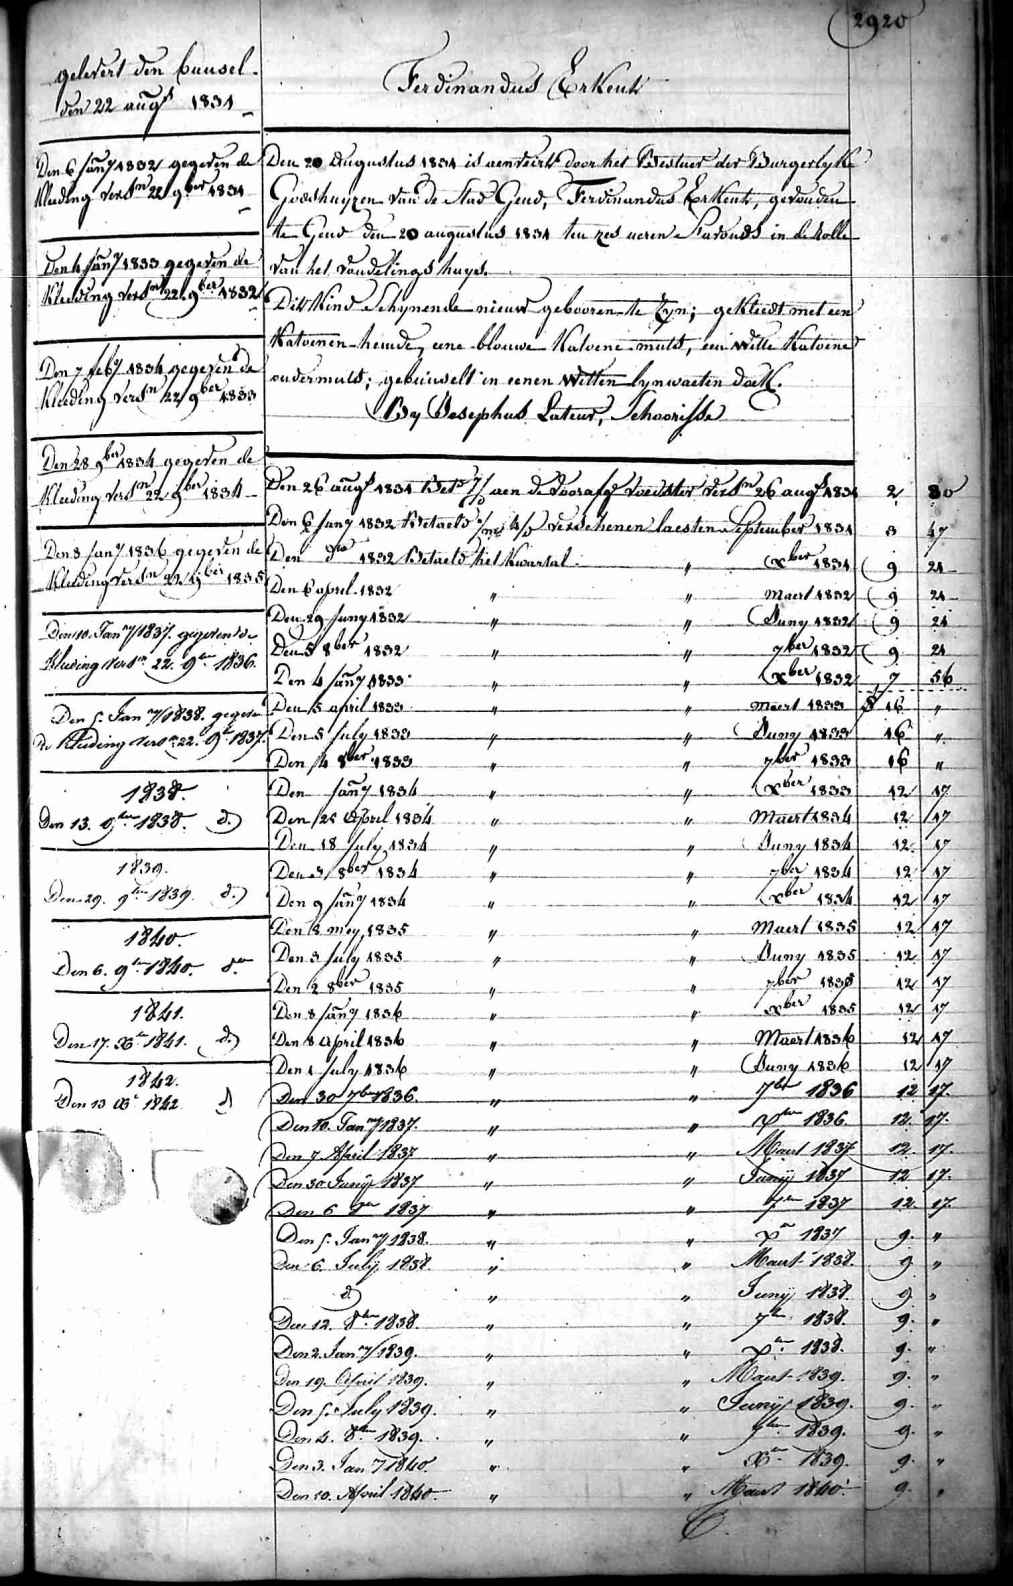 2920
gelevert den bunsel.
den 22 augt 1831
Ferdinandus Erkent
Den 6 Jany 1832 gegeven de
Kleeding versn 22 9ber 1831
Den 4 Jany 1833 gegeven de
Kleeding versn 22 9ber 1832
Den 7 feby 1834 gegeven de
Kleeding versn 22 9ber 1833
Den 28 9ber 1834 gegeven de
Kleeding versn 22 9ber 1834
Den 8 Jany 1836 gegeven de
Kleeding versn 22 9ber 1835
Den 10. Jany 1837. gegeven de
Kleeding versn 22. 9er 1836.
Den 5. Jany 1838. gegeven
de Kleeding versn 22. 9r 1837.
1838.
Den 13. 9ber 1838. d.)
1839.
Den 29. 9ber 1839. d.)
1840.
Den 6. 9ber 1840. do
1841.
Den 17. Xr 1841. d.)
1842.
Den 13 Xr 1842 d
Den 20 Augustus 1831 is aenveirt door het Bestuer der Burgerlyke
Godshuyzen van de stad Gend, Ferdinandus Erkent, gevonden
te Gend den 20 augustus 1831 ten zes ueren s'avonds in de Rolle
van het vondelings huys.
Dit Kind schynende nieuw gebooren te zyn; gekleedt met een
Katoenen hemde, eene blouwe Katoene muts, een witte Katoene
ondermuts; gebunselt in eenen witten lynwaeten doek.
By Josephus Lateur, Schoorisse
Den 26 augt 1831 Bet aen de voorafg voedster versn 26 augt 1831 2 80
Den 6 Jany 1832 Betaeld verschenen laesten September 1831 3 47
Den dto 1832 Betaeld het Kwartal " Xber 1831 9 24
Den 6 april 1832 " " Maert 1832 9 24
Den 29 Juny 1832 " " Juny 1832 9 24
Den 5 8ber 1832 " " 7ber 1832 9 24
Den 4 Jany 1833 " " Xber 1832 7 56
Den 5 april 1833 " " Maert 1833 16 "
Den 5 July 1833 " " Juny 1833 16 "
Den 4 8ber 1833 " " 7ber 1833 16 "
Den Jany 1834 " " Xber 1833 12 17
Den 25 April 1834 " " Maert 1834 12 17
Den 18 July 1834 " " Juny 1834 12 17
Den 3 8ber 1834 " " 7ber 1834 12 17
Den 9 Jany 1834 " " Xber 1834 12 17
Den 8 mey 1835 " " Maert 1835 12 17
Den 3 July 1835 " " Juny 1835 12 17
Den 2 8ber 1835 " " 7ber 1835 12 17
Den 8 Jany 1836 " " Xber 1835 12 17
Den 8 April 1836 " " Maert 1836 12 17
Den 1 July 1836 " " Juny 1836 12 17
Den 30 7ber 1836. " " 7ber 1836 12 17.
Den 10. Jany 1837. " " Xber 1836. 12. 17.
Den 7 April 1837 " " Maert 1837 12. 17.
Den 30 Junij 1837 " " Junij 1837 12 17.
Den 6 8er 1837 " " 7er 1837 12. 17.
Den 5. Jany 1838. " " Xr 1837 9. "
Den 6. July 1838. " " Maert 1838. 9 "
d) " " Junij 1838. 9 "
Den 12. 8ber 1838. " " 7er 1838. 9. "
Den 2. Jany 1839. " " Xer 1838. 9. "
Den 19. April 1839. " " Maert 1839. 9. "
Den 5. July 1839. " " Junij 1839. 9. "
Den 4. 8er 1839. " " 7er 1839. 9. "
Den 3. Jany 1840. " " Xer 1839. 9. "
Den 10. April 1840. " " Maert 1840. 9. "